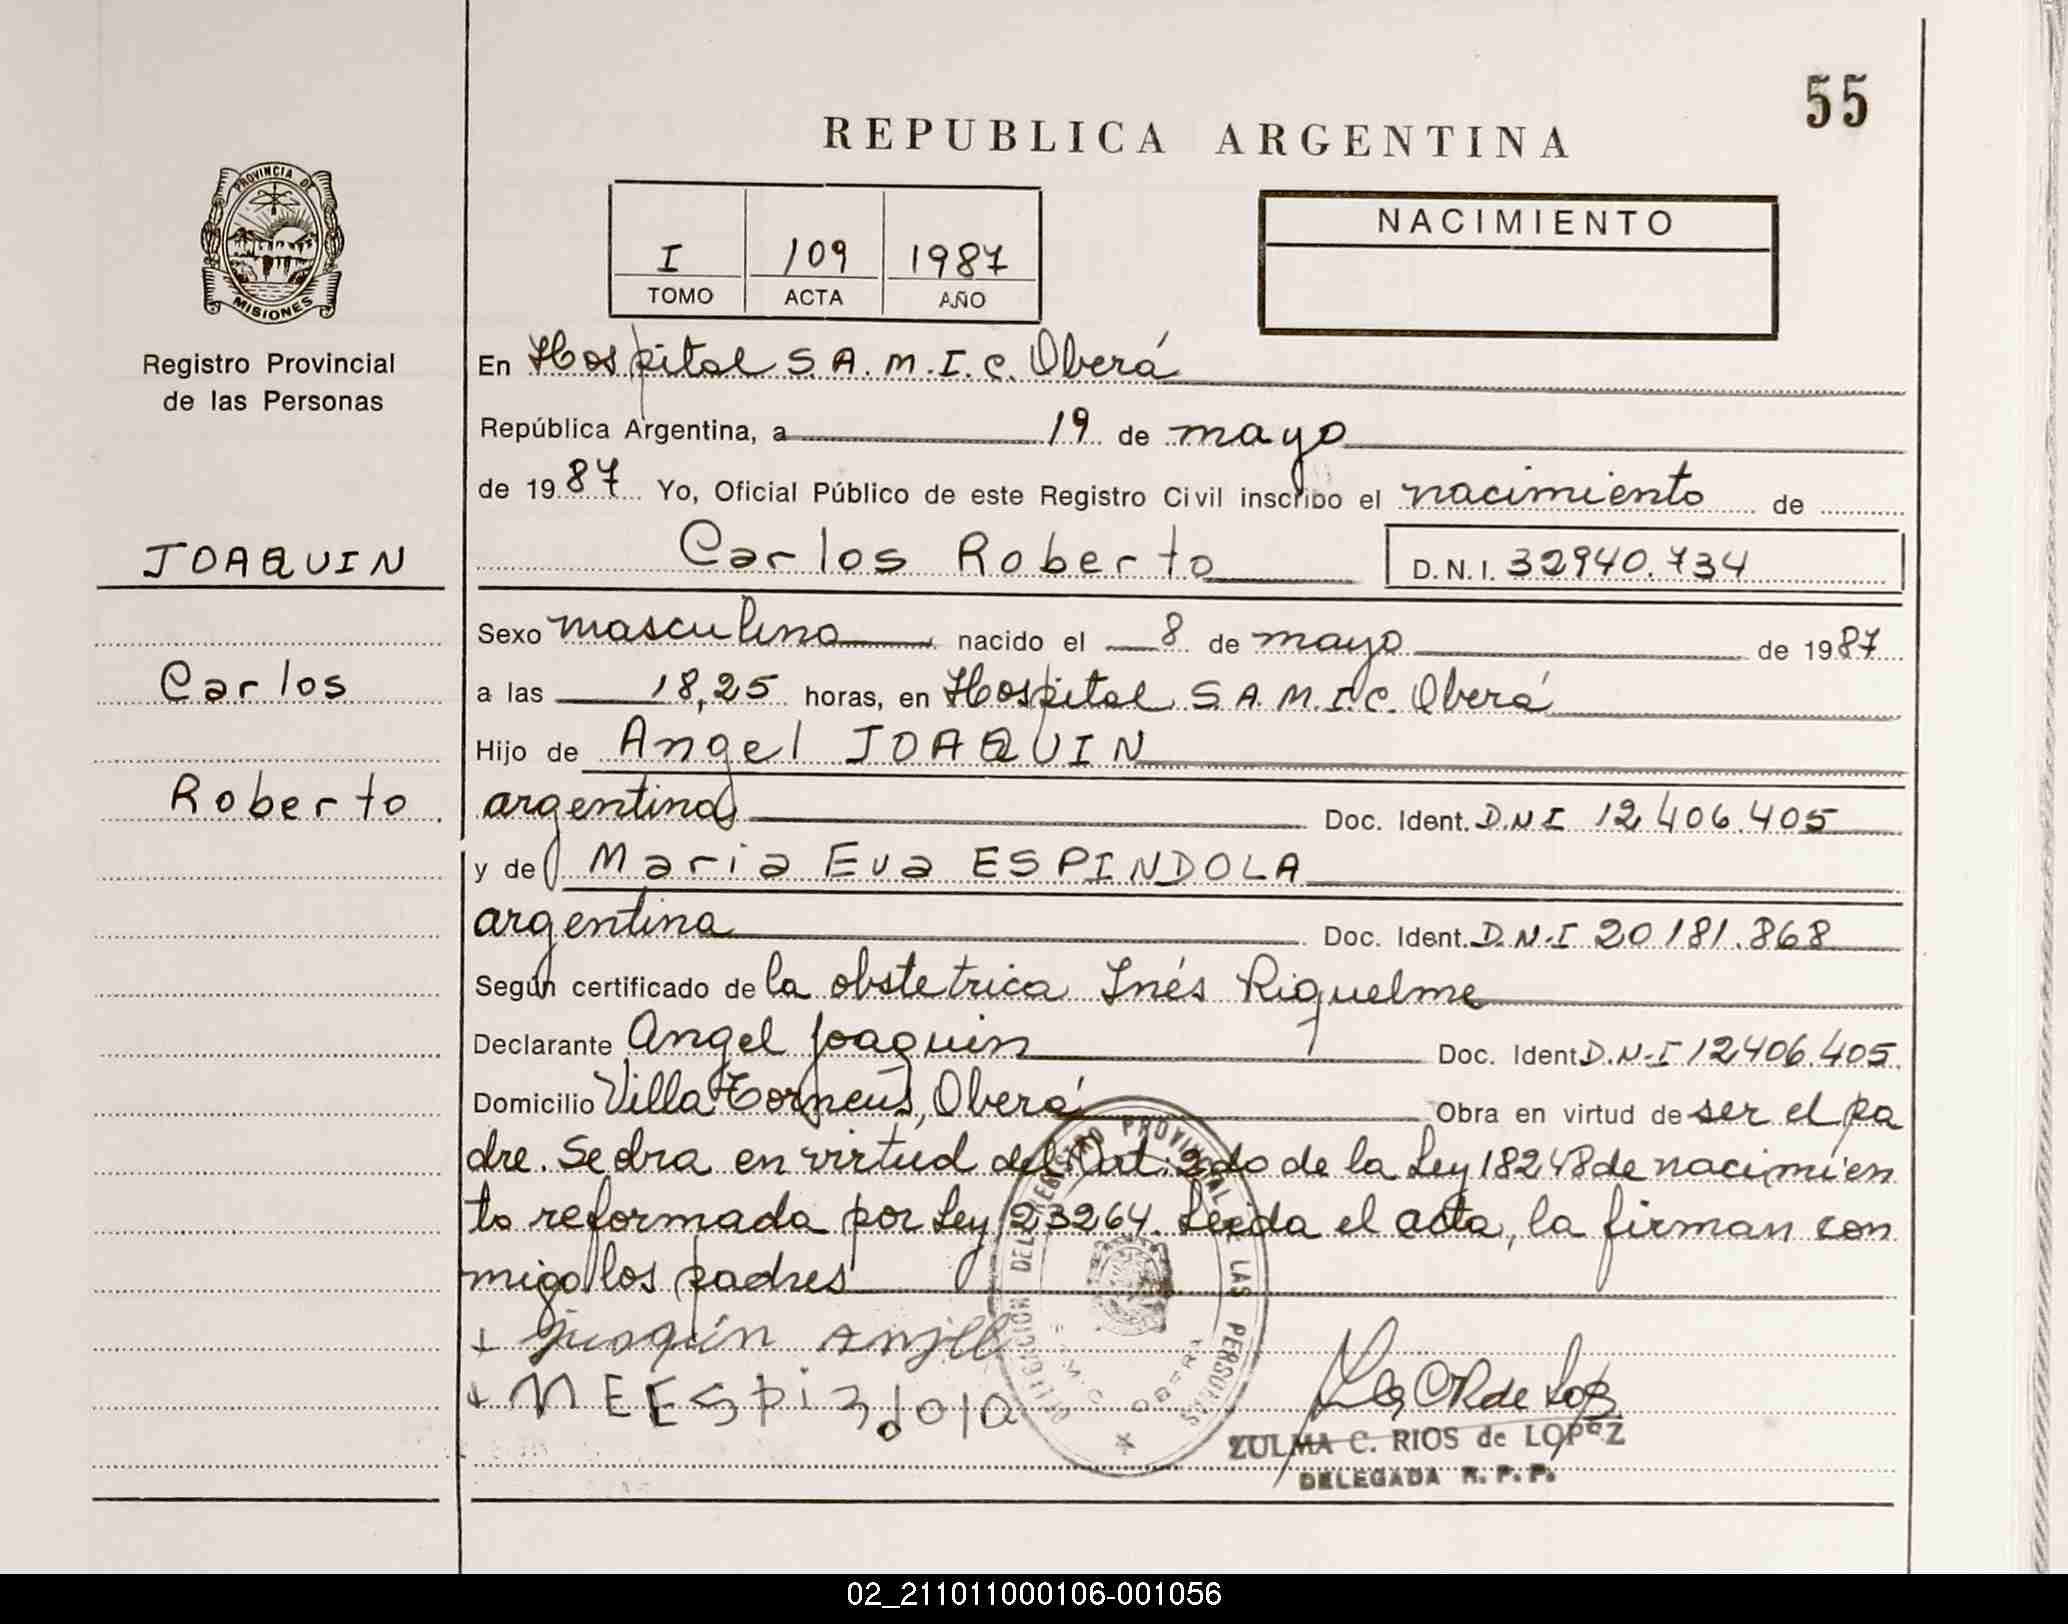 55
REPUBLICA ARGENTINA
PROVINCIA DE
MISIONES
Registro Provincial
de las Personas
I 109 1987
TOMO ACTA AÑO
NACIMIENTO
En Hospital S.A.M.I.C. Oberá
República Argentina, a 19 de mayo
de 1987 Yo, Oficial Público de este Registro Civil inscribo el nacimiento de
JOAQUIN
Carlos Roberto D.N.I. 32940.734
Sexo masculino nacido el 8 de mayo de 1987
Carlos
a las 18,25 horas, en Hospital S.A.M.I.C. Oberá
Hijo de Angel JOAQUIN
Roberto
argentino Doc. Ident. D.N.I 12.406.405
y de Maria Eva ESPINDOLA
argentina Doc. Ident. D.N.I 20181.868
Según certificado de la obstetrica Inés Riquelme
Declarante Angel Joaquin Doc. Ident D.N.I 12406.405.
Domicilio Villa Torneus, Oberá Obra en virtud de ser el pa
dre. Se obra en virtud del Art. 2do de la Ley 18248 de nacimien
to reformada por Ley 23264. Leida el acta, la firman con
migo los padres
DELEGACION DEL REGISTRO PROVINCIAL DE LAS PERSONAS
ZULMA C. RIOS de LOPEZ
DELEGADA R. P. P.
02_211011000106-001056